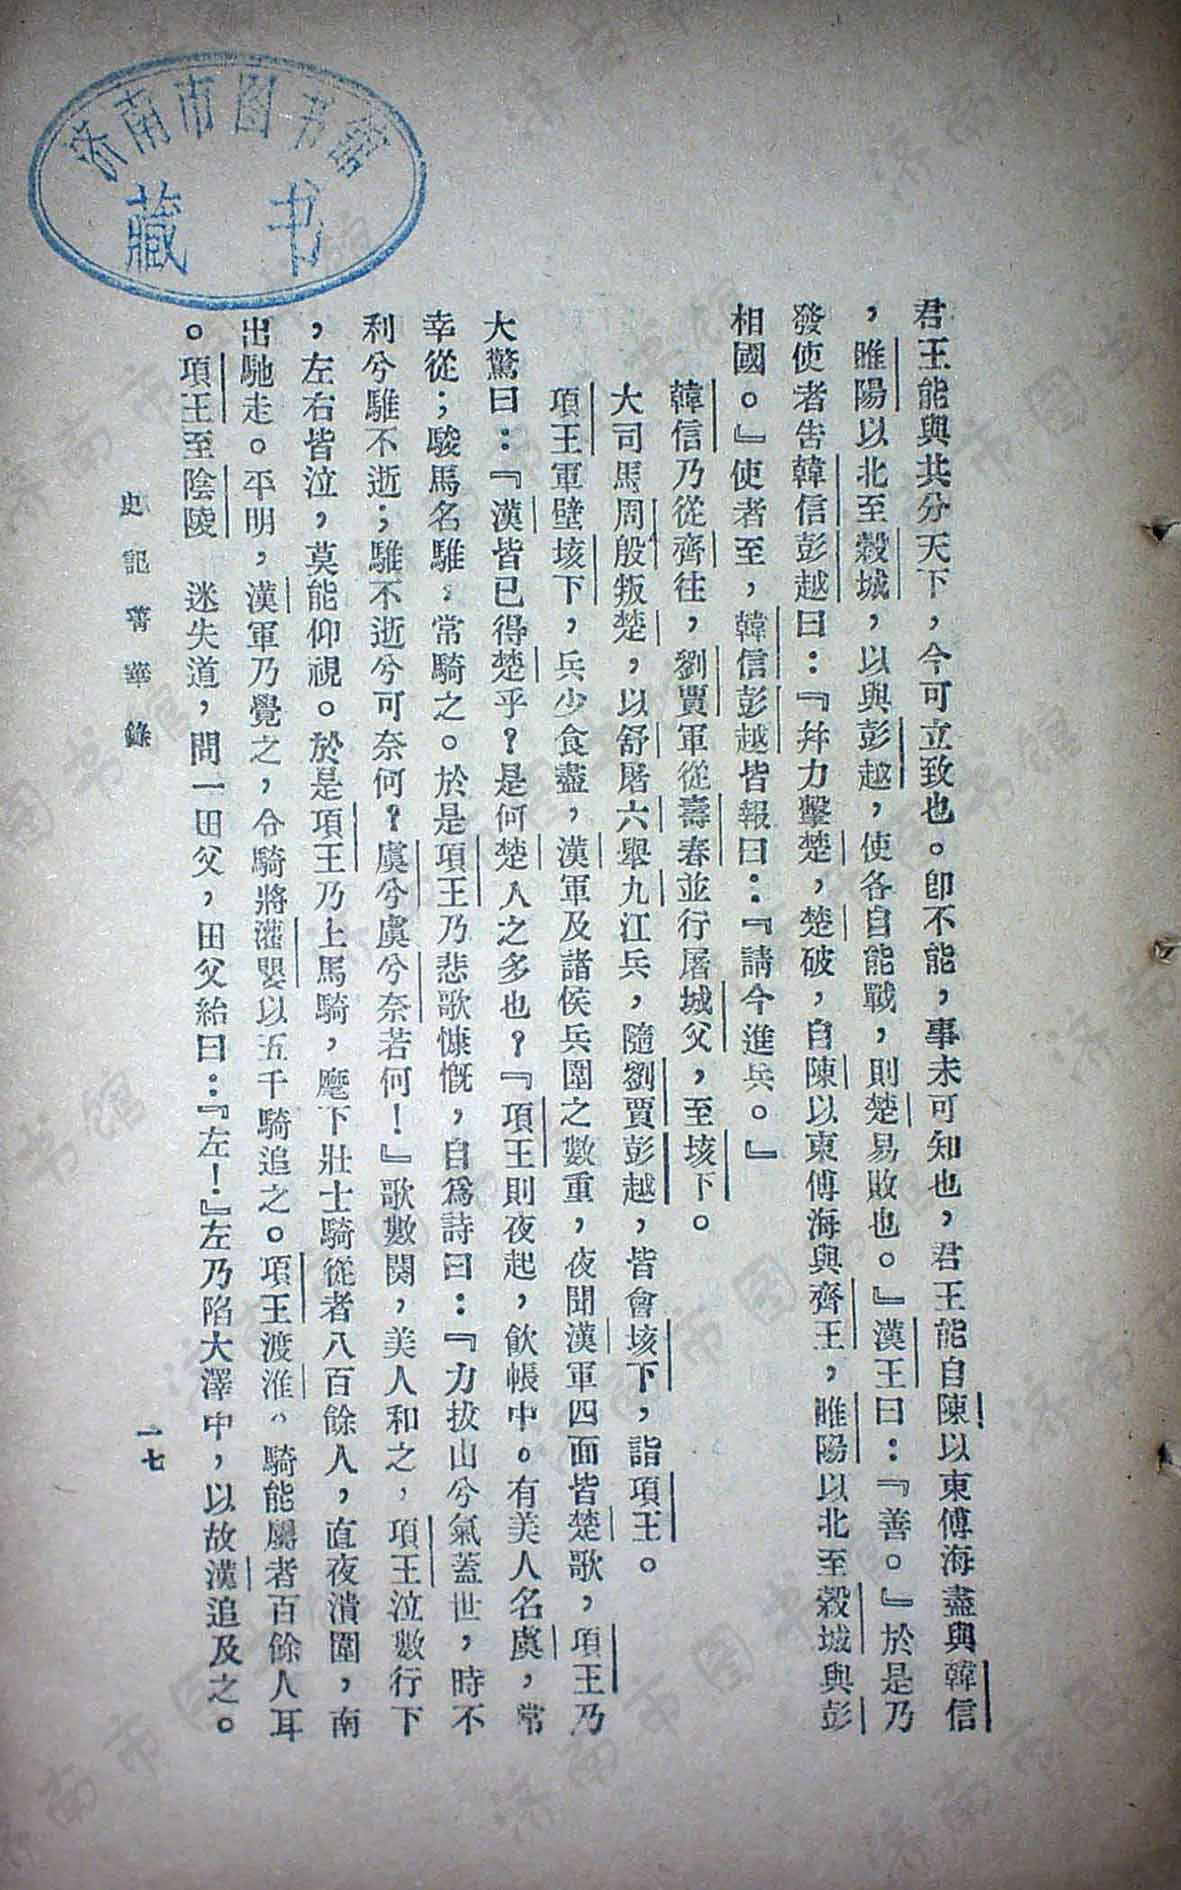 济南市图书馆
藏书
君王能與共分天下，今可立致也。卽不能，事未可知也，君王能自陳以東傅海盡與韓信
，睢陽以北至穀城，以與彭越，使各自能戰，則楚易敗也。』漢王曰：『善。』於是乃
發使者告韓信彭越曰：『幷力擊楚，楚破，自陳以東傅海與齊王，睢陽以北至穀城與彭
相國。』使者至，韓信彭越皆報曰：『請今進兵。』
韓信乃從齊往，劉賈軍從壽春並行屠城父，至垓下。
大司馬周殷叛楚，以舒屠六舉九江兵，隨劉賈彭越，皆會垓下，詣項王。
項王軍壁垓下，兵少食盡，漢軍及諸侯兵圍之數重，夜聞漢軍四面皆楚歌，項王乃
大驚曰：『漢皆已得楚乎？是何楚人之多也？『項王則夜起，飮帳中。有美人名虞，常
幸從；駿馬名騅，常騎之。於是項王乃悲歌慷慨，自爲詩曰：『力拔山兮氣蓋世，時不
利兮騅不逝；騅不逝兮可奈何？虞兮虞兮奈若何！』歌數闋，美人和之，項王泣數行下
，左右皆泣，莫能仰視。於是項王乃上馬騎，麾下壯士騎從者八百餘人，直夜潰圍，南
出馳走。平明，漢軍乃覺之，令騎將灌嬰以五千騎追之。項王渡淮。騎能屬者百餘人耳
。項王至陰陵 迷失道，問一田父，田父紿曰：『左！』左乃陷大澤中，以故漢追及之。
史記菁華錄
一七